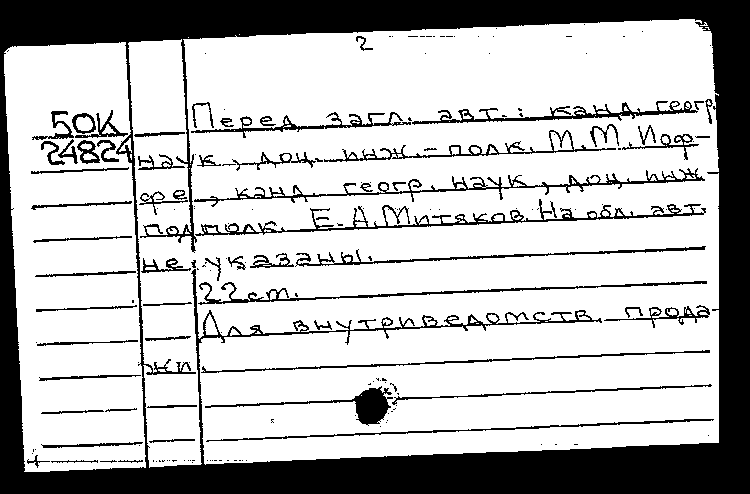 2
50К
24824
Перед загл. авт.: канд. геогр.
наук, доц. инж.-полк. М.М.Иоф-
фе, канд. геогр. наук, доц. инж-
подполк. Е.А.Митяков. На обл. авт.
не указаны.
22 ст.
Для внутриведомств. прода-
жи.